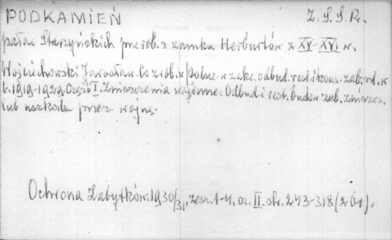 PODKAMIEŃ Z.S.S.R.
pałac Starzyńskich przerob. z zamku Herburtów z XV-XVI w.
Wojciechowski Jarosław. Co zrob. w Polsce w zakr. odbud. rest. i kons. zab. ... w
l. 1919-1929. Część I. Zniszczenia wojenne. Odbud. i rest. budow. zab. zniszcz.
lub uszkodz. przez wojnę.
Ochrona Zabytków. 1930/31, zesz. 1-4. cz. II. str. 243-318 (261).